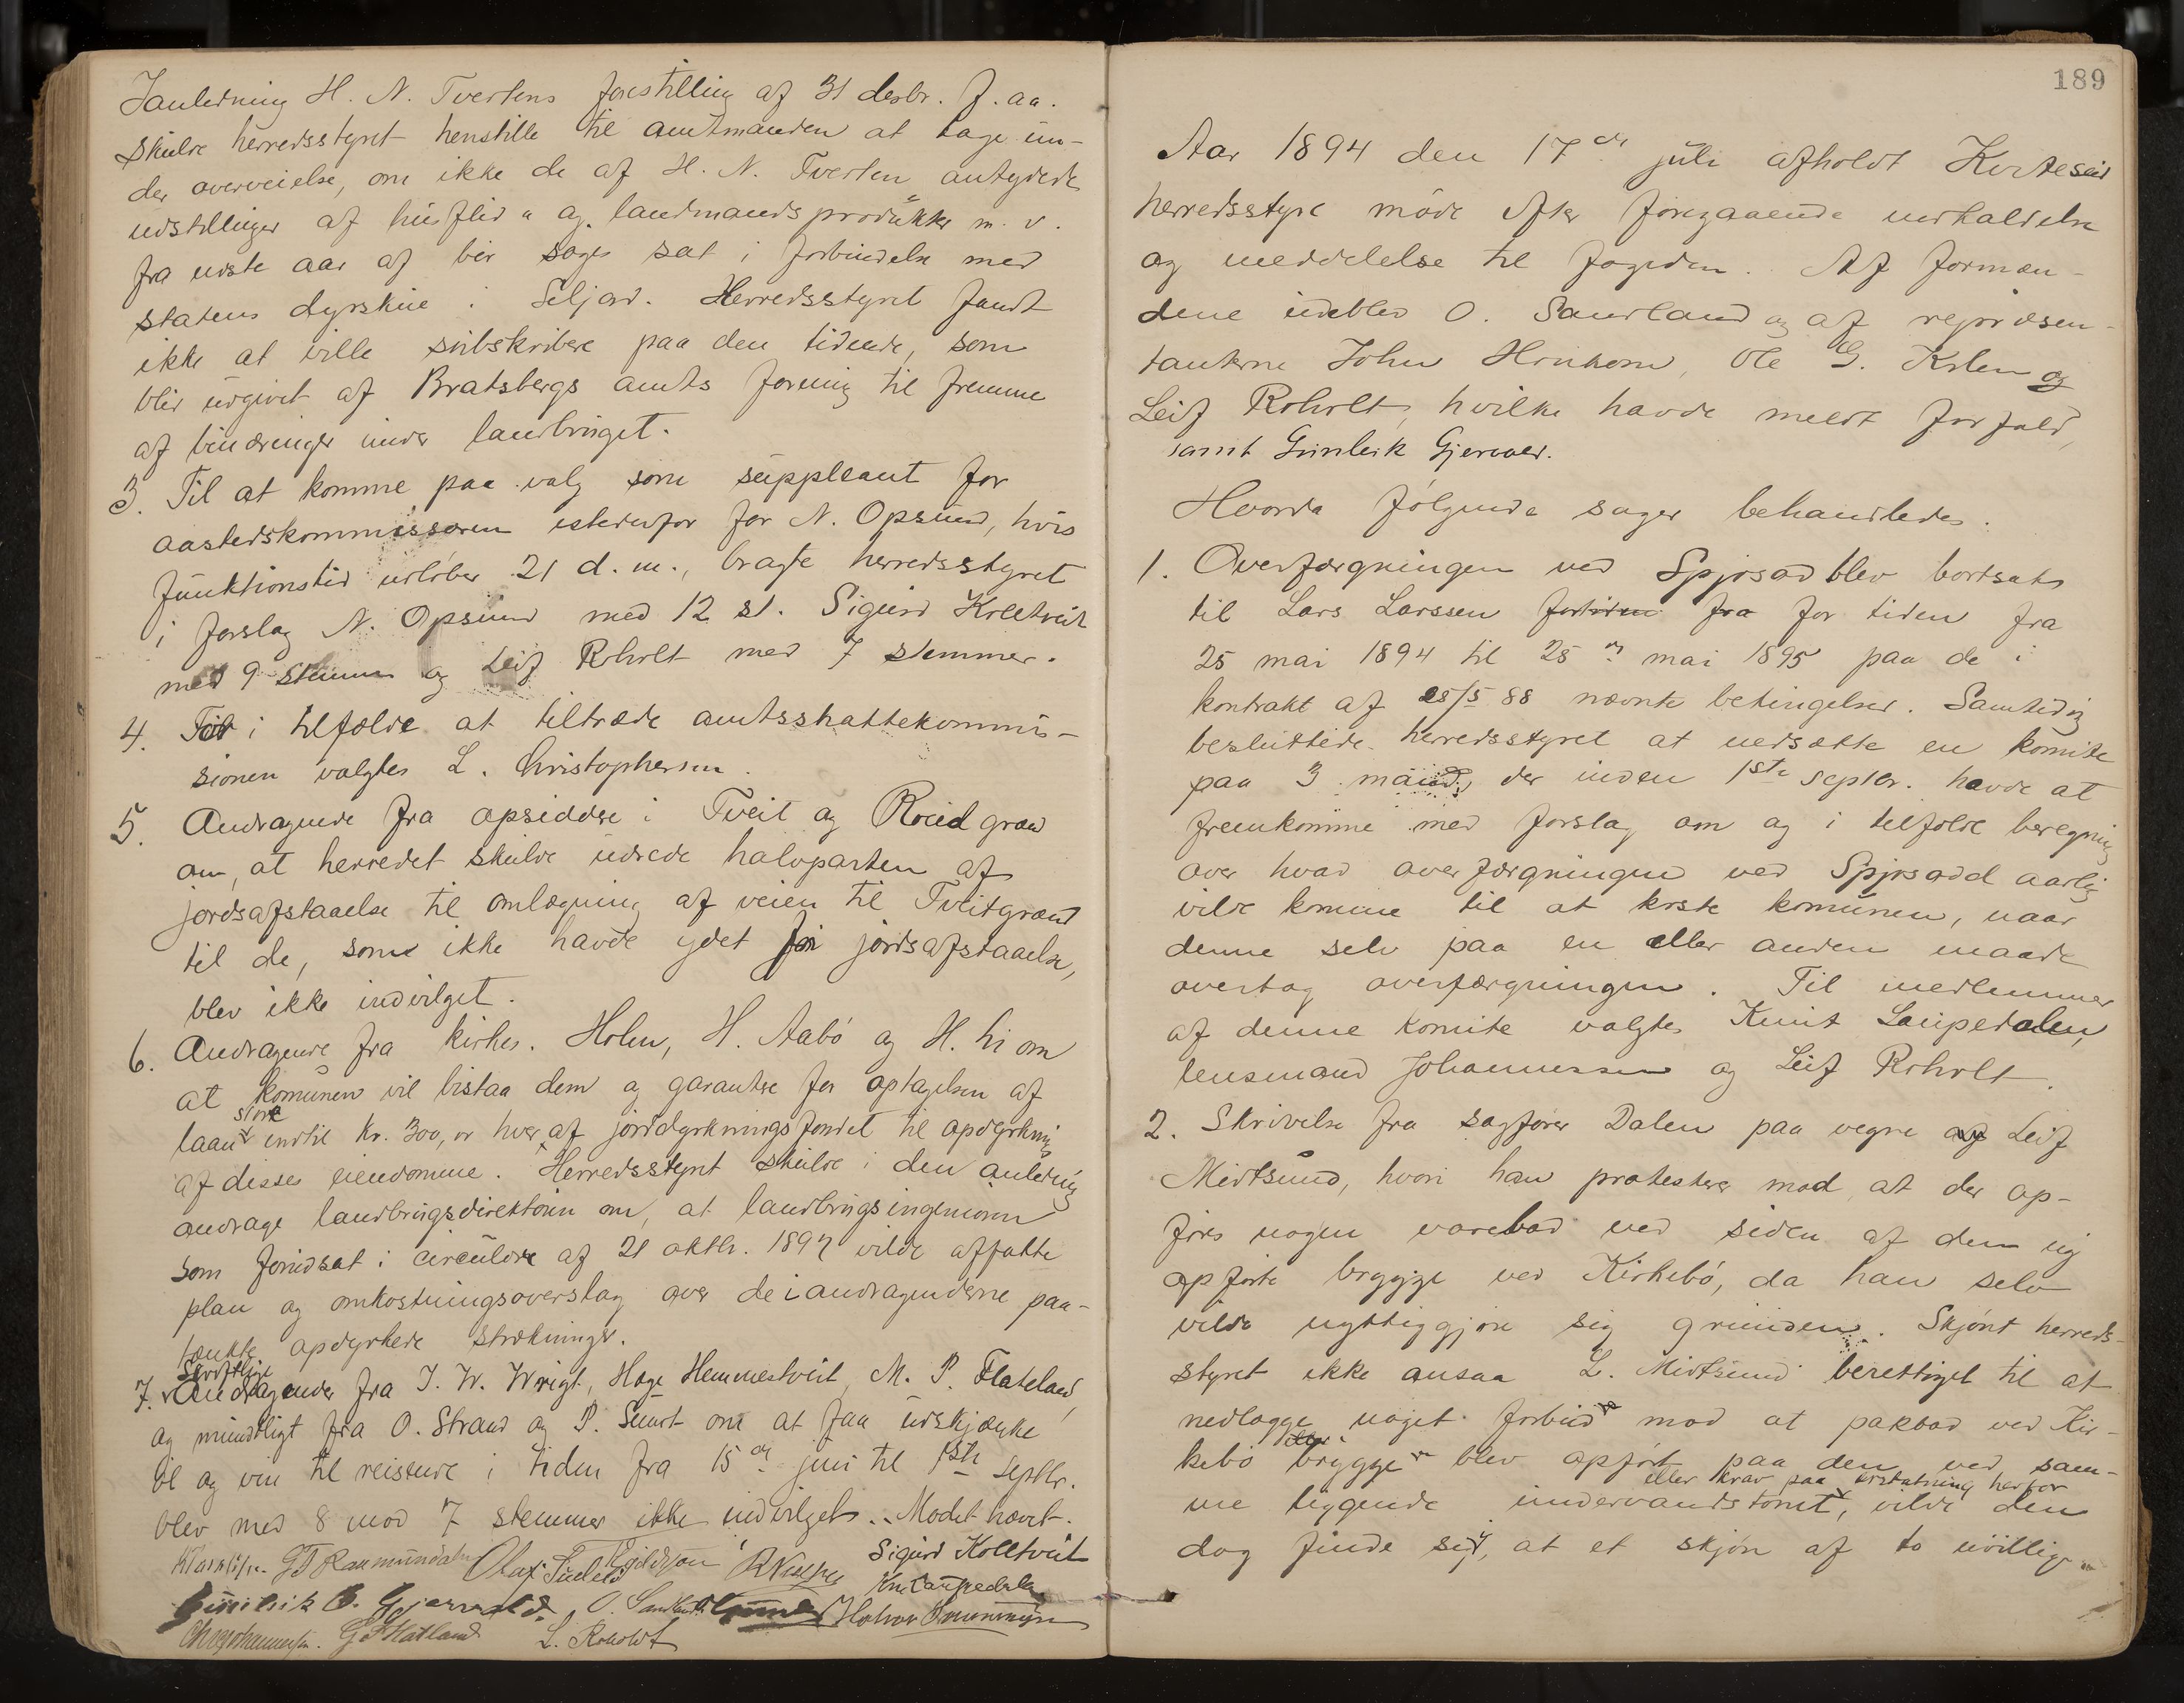 I anledning H. N. Tveitens forestilling af 31 desbr. f. aa.
skulde herredsstyret henstille til amtmanden at tage un-
der overveielse, om ikke de af H. N. Tveiten antydede
udstillinger af husflid " og landmandsprodukter m. v.
fra neste aar af bør søges sat i forbindelse med
statens dyrskue i Seljord. Herredsstyret fandt
ikke at ville subskribere paa den tidende, som
blir udgivet af Bratsbergs amts forening til fremme
af binæringer under landbruget.
3. Til at komme paa valg som suppleant for
aastedskommissæren istedenfor for N. Opsund, hvis
funktionstid udløber 21 d. m., bragte herredsstyret
i forslag N. Opsund med 12 st. Sigurd Kolltveit
med 9 stemmer og Leif Roholt med 7 stemmer.
4. Til i tilfælde at tiltræde amtsskattekommis-
sionen valgtes L. Christophersen.
5. Andragende fra opsiddere i Tveit og Roeid grænd
om, at herredet skulde udrede halvparten af
jordsafstaaelse til omlægning af veien til Tveitgrænd
til de, som ikke havde ydet fri jordsafstaaelse,
blev ikke indvilget.
6. Andragende fra kirkes. Holm, H. Aabø og H. Li om
at komunen vil bistaa dem og garantere for optagelsen af
store
laan indtil Kr. 300, or hver af jorddyrkningsfondet til opdyrkning
af disses eiendomme. Herredsstyret skulde i den anledning
andrage landbrugsdirektøren om, at landbrugsingeniøren
som forudsat i circulære af 21 oktbr. 1892 vilde affatte
plan og omkostningsoverslag over de i andragenderne paa-
tænkte opdyrkede strækninger.
Skriftlige
7. Andragender fra J. W. Wrigt, Hæge Hemmestveit, M. P. Flateland,
og mundtligt fra O. Strand og P. Smert om at faa udskjænke
øl og vin til reisende i tiden fra 15de juni til 1ste septbr.
blev med 8 mod 7 stemmer ikke indvilget. Mødet hævet.
G T Raumundalen Olav Sudbø Sigurd Kolltveit
Gunleik O. Gjervald. Knut Laupedalen
G S Hatland L. Roholdt
189
Aar 1894 den 17de juli afholdt Kviteseid
herredsstyre møde efter foregaaende indkaldelse
og meddelelse til fogden. Af formæn-
dene udeblev O. Sandland og af repræsen-
tanterne John Hvitvom, Ole G. Kilen og
Leif Roholt, hvilke havde meldt forfald,
samt Gunleik Gjervald.
Hvorda følgende sager behandledes.
1. Overfærgningen ved Spjosod blev bortsat
til Lars Larssen fortiden fra for tiden fra
25 mai 1894 til 25de mai 1895 paa de i
kontrakt af 28/5 88 nævnte betingelser. Samtidig
besluttede herredsstyret at nedsætte en komite
paa 3 mænd, der inden 1ste septbr. havde at
fremkomme med forslag om og i tilfælde beregning
over hvad overfærgningen ved Spjosodd aarlig
vilde komme til at koste komunen, naar
denne selv paa en eller anden maade
overtog overfærgningen. Til medlemmer
af denne komite valgtes Knut Laupedalen,
lensmand Johannessen og Leif Roholt.
2. Skrivelse fra sagfører Dalen paa vegne af Leif
Midtsund, hvori han protesterer mod, at der op-
føres nogen varebod ved siden af den ny
opførte brygge ved Kirkebø, da han selv
vilde nyttiggjøre sig grunden. Skjønt herreds-
styret ikke ansaa L. Midtsund berettiget til at
nedlægge noget forbud mod at pakbod ved Kir-
kebø brygge blev opført paa den ved sam-
eller krav paa erstatning herfor
me liggende undervandstomt, vilde den
dog finde sig, at et skjøn af to uvillige